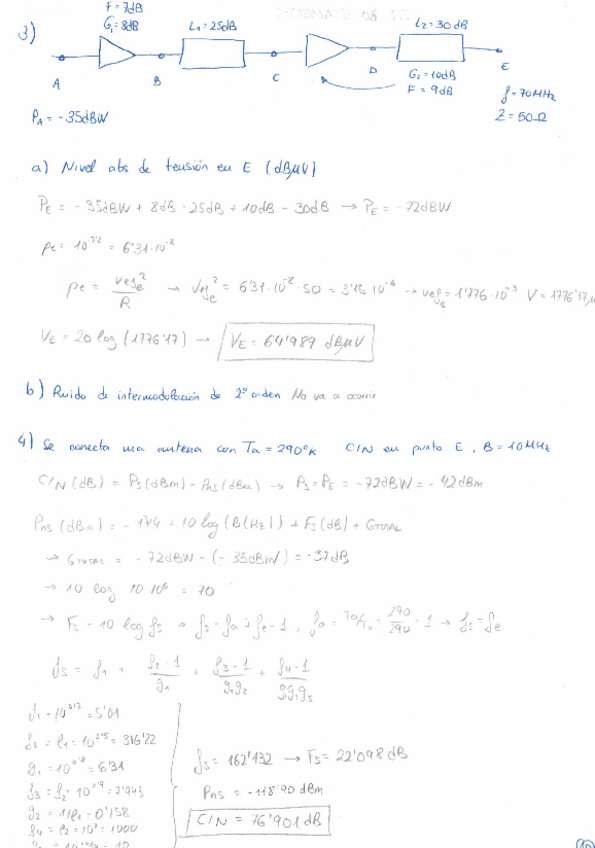 3)
F = 7dB
G₁ = 8dB
L₁ = 25dB
L₂ = 30dB
A B C D E
G₂ = 10dB
F = 9dB
P_A = -35dBW
f = 70MHz
Z = 50Ω
a) Nivel abs de tensión en E (dBμV)
P_E = -35dBW + 8dB - 25dB + 10dB - 30dB → P_E = -72dBW
p_E = 10^-7'2 = 6'31·10^-8
p_E = vef_E² / R → vef_E² = 6'31·10^-8 · 50 = 3'15·10^-6 → vef_E = 1'776·10^-3 V = 1776'17μ
V_E = 20 log (1776'17) → V_E = 64'989 dBμV
b) Ruido de intermodulación de 2º orden No va a ocurrir
4) Se conecta una antena con Ta = 290ºK C/N en punto E, B = 10MHz
C/N (dB) = Ps (dBm) - P_NS (dBm) → Ps = P_E = -72dBW = -42dBm
P_NS (dBm) = -174 + 10 log (B(Hz)) + Fs(dB) + G_TOTAL
→ G_TOTAL = -72dBW - (-35dBW) = -37dB
→ 10 log 10·10⁶ = 70
→ Fs = 10 log fs → fs = fa + fe - 1, fa = Ta/To = 290/290 = 1 → fs = fe
fs = f1 + (f2 - 1)/g1 + (f3 - 1)/g1g2 + (f4 - 1)/g1g2g3
f1 = 10^0'7 = 5'01
f2 = l1 = 10^2'5 = 316'22
g1 = 10^0'8 = 6'31
f3 = f2 = 10^0'9 = 7'943
g2 = 1/l1 = 0'158
f4 = l2 = 10³ = 1000
fs = 162'132 → Fs = 22'098 dB
P_NS = -118'90 dBm
C/N = 76'901 dB